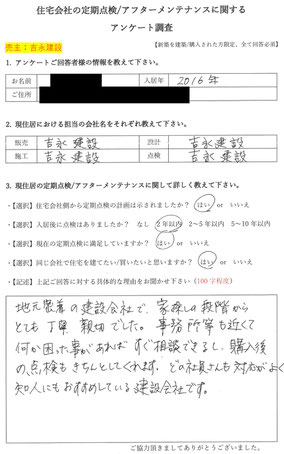 住宅会社の定期点検/アフターメンテナンスに関する
アンケート調査
売主：吉永建設
【新築を建築/購入された方限定、全て回答必須】
1. アンケートご回答者様の情報を教えて下さい。
お名前 入居年 2016年
ご住所
2. 現住居における担当の会社名をそれぞれ教えて下さい。
販売 吉永建設 設計 吉永建設
施工 吉永建設 点検 吉永建設
3. 現住居の定期点検/アフターメンテナンスに関して詳しく教えて下さい。
・【選択】住宅会社側から定期点検の計画は示されましたか？ はい or いいえ
・【選択】入居後に点検はありましたか？ なし 2年以内 2～5年以内 5～10年以内
・【選択】現在の定期点検に満足していますか？ はい or いいえ
・【選択】同じ会社で住宅を建てたい/買いたいと思いますか？ はい or いいえ
・【記述】上記ご回答に対する具体的な理由をお聞かせ下さい（100字程度）
地元密着の建設会社で、家探しの段階から
とても丁寧、親切でした。事務所等も近くて
何か困った事があればすぐ相談できるし、購入後
の点検もきちんとしてくれます。どの社員さんも対応がよく
知人にもおすすめしている建設会社です。
ご協力頂きましてありがとうございました。